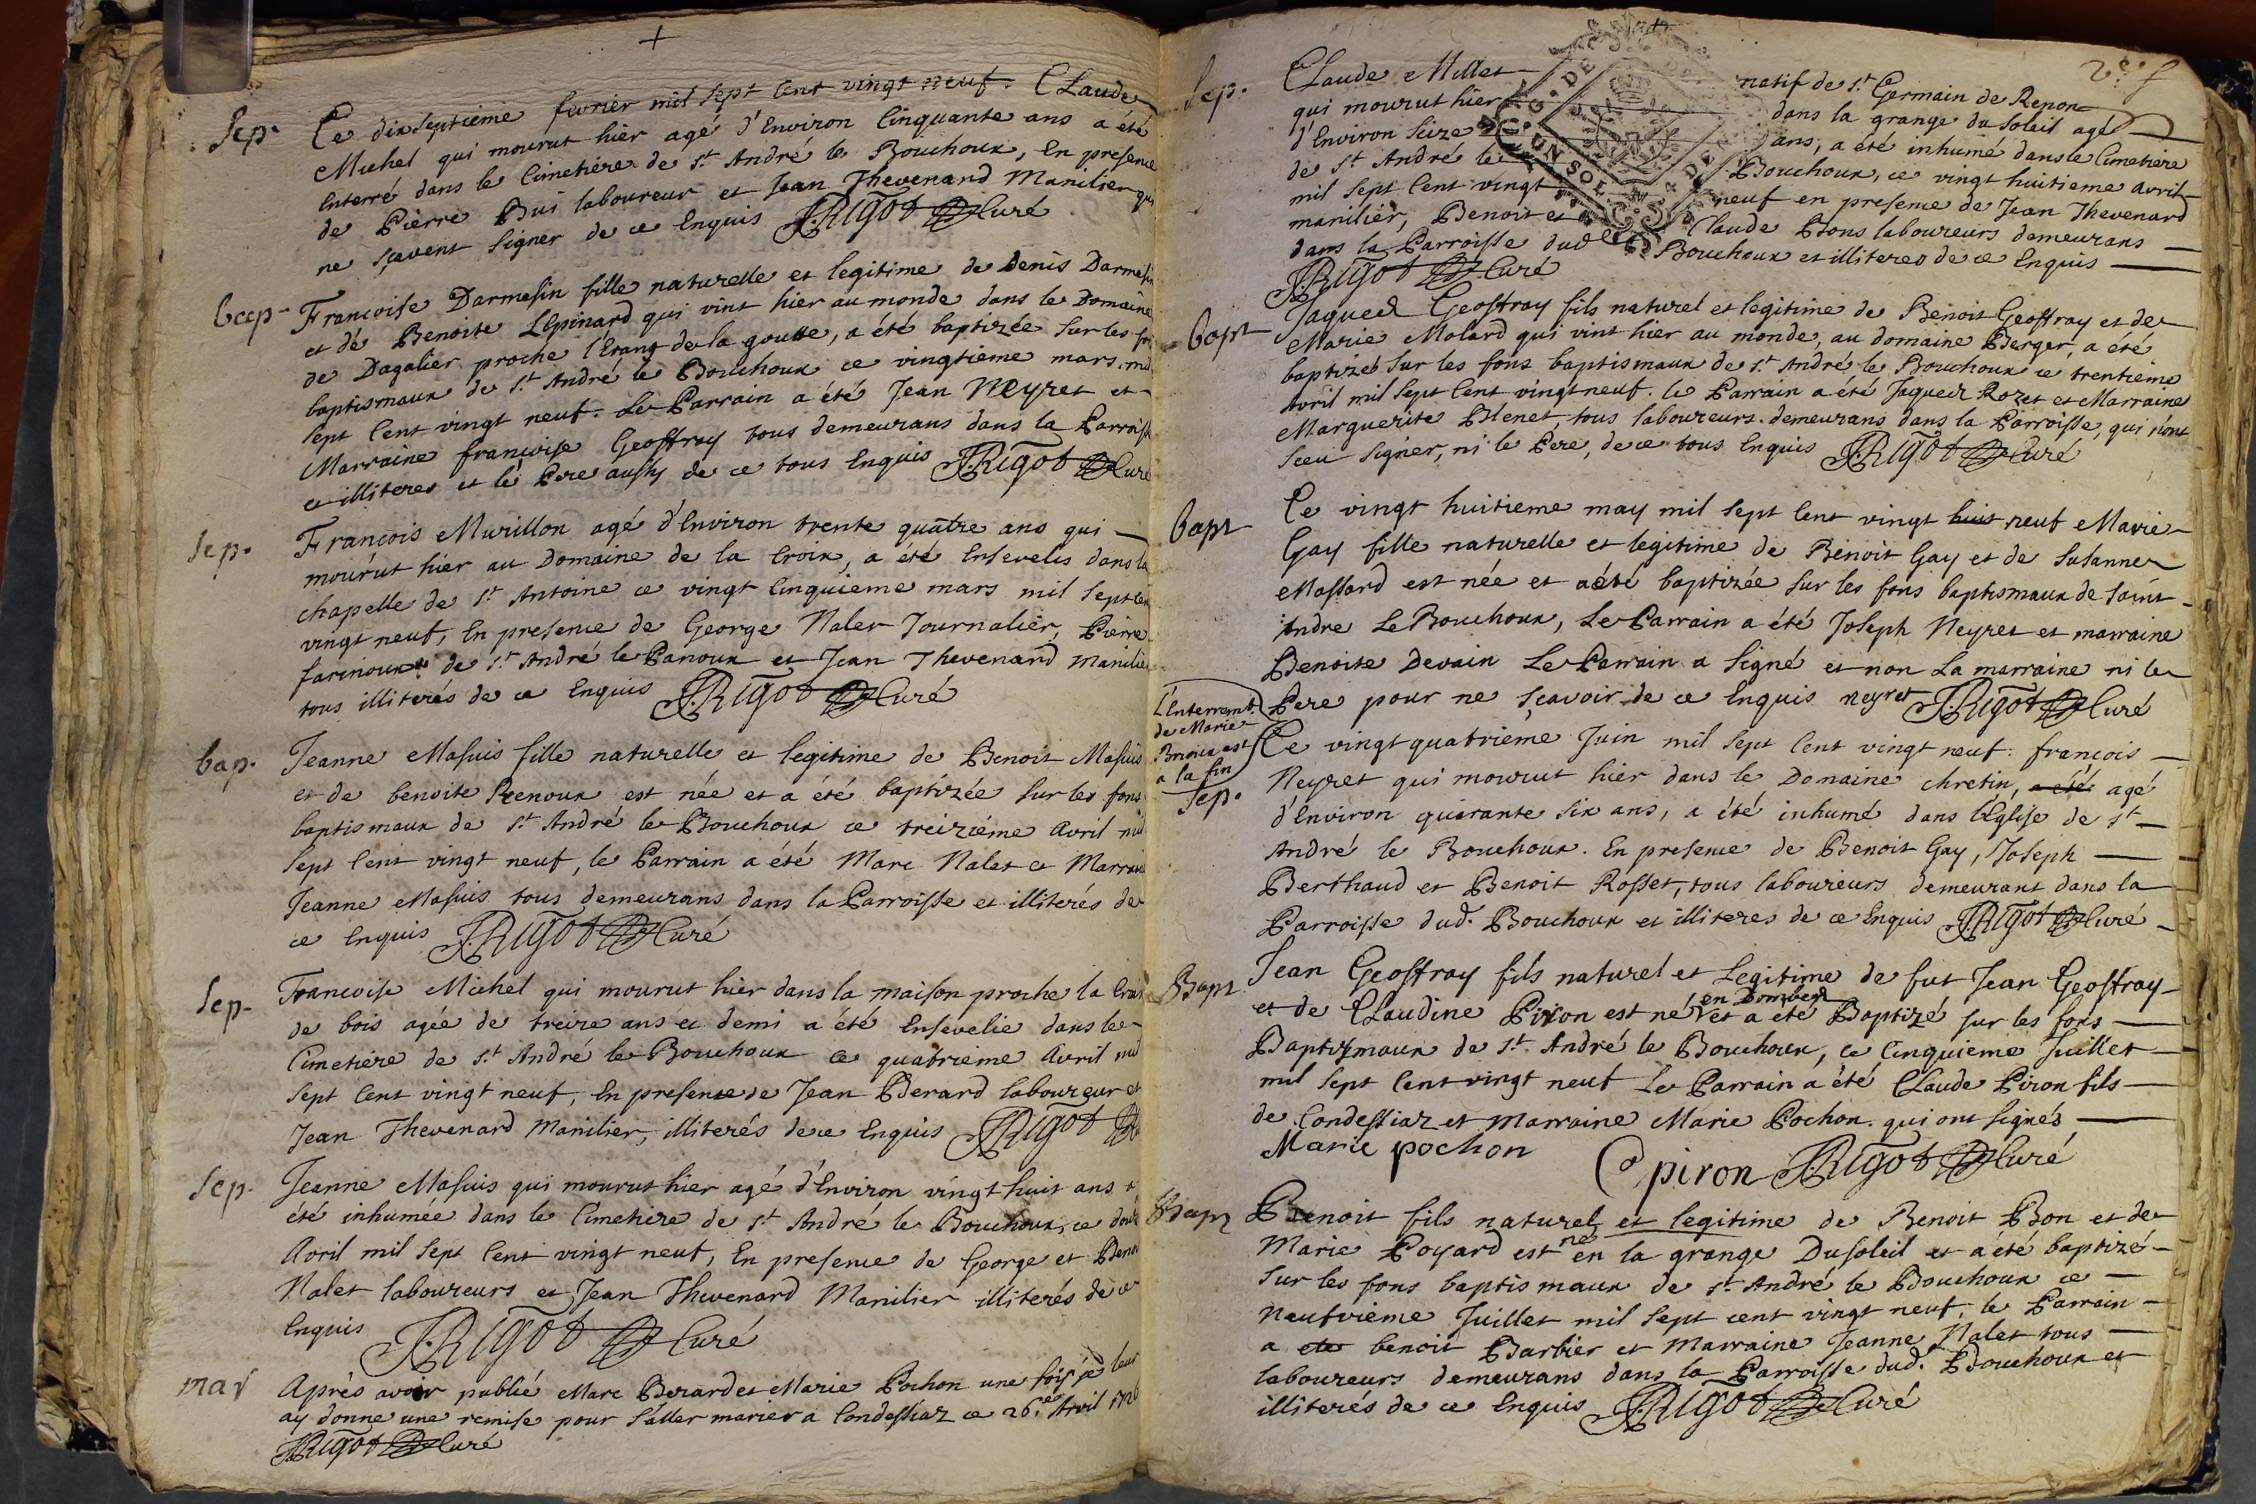 +
Sep.
Ce dixseptieme fevrier mil sept Cent vingt neuf. Claude
Michel qui mourut hier agé d'Environ Cinquante ans a été
Enterré dans le Cimetière de St. André le Bouchoux, En presence
de Pièrre Bui laboureur et Jean Thevenard Manilier qui
ne sçavent signer de ce Enquis JRigot Curé
bap
Francoise Darmesin fille naturelle et legitime de Denis Darmesin
et dé Benoite Lépinard qui vint hier au monde dans le Domaine
de Dagalier proche l'Etang de la goutte, a été baptizée sur les fo
baptismaux de St. André le Bouchoux ce vingtieme mars mil
sept Cent vingt neuf. Le Parrain a été Jean Neyret et
Marraine françoise Geoffray tous demeurans dans la Parroisse
et illiteres et le Pere aussy de ce tous Enquis JRigot Curé
Sep.
François Murillon agé d'Environ trente quatre ans qui
mourut hier au Domaine de la Croix, a été Ensevelis dans la
chapelle de St. Antoine ce vingt Cinquieme mars mil sept cen
vingt neuf, En presence de George Nalet Journalier, Pierre
farnoux de St. André le Panoux et Jean Thevenard Manilier
tous illiterés de ce Enquis JRigot Curé
bap.
Jeanne Masuis fille naturelle et legitime de Benoit Masuis
et de benoite Renoux est née et a été baptizée sur les fons
baptismaux de St. André le Bouchoux ce treiziéme Avril mil
sept Cent vingt neuf, le Parrain a été Marc Nalet et Marraine
Jeanne Masuis tous demeurans dans la Parroisse et illiterés de
ce Enquis JRigot Curé
Sep.
Francoise Michel qui mourut hier dans la maison proche la Croix
de bois agée de treize ans et demi a été Ensevelie dans le
Cimetière de St. André le Bouchoux ce quatrieme Avril mil
sept Cent vingt neuf, En presence de Jean Berard laboureur et
Jean Thevenard Manilier, illiterés de ce Enquis JRigot
Sep.
Jeanne Masuis qui mourut hier agé d'Environ vingt huit ans a
été inhumée dans le Cimetiere de St. André le Bouchoux, ce
Avril mil sept Cent vingt neuf, En presence de George et Benoi
Nalet laboureurs et Jean Thevenard Manilier illiterés de ce
Enquis JRigot Curé
mar
Après avoir publié Marc Berard et Marie Pochon une fois je leur
ay donne une remise pour s'aller marier a Condessiaz ce 26e Avril 172
JRigot Curé
Sep.
Claude Millet natif de St. Germain de Renon
qui mourut hier dans la grange du Soleil agé
d'Environ seize ans, a été inhumé dans le Cimetière
de St. André le Bouchoux, ce vingt huitieme Avril
mil sept Cent vingt neuf en presence de Jean Thevenard
manilier, Benoit et Claude Bons laboureurs demeurans
dans la Parroisse dud. Bouchoux et illiteres de ce Enquis
JRigot Curé
G. DE
UN SOL
bapt
Jaques Geoffray fils naturel et legitime de Benoit Geoffray et de
Marie Molard qui vint hier au monde, au domaine Berger, a été
baptizé sur les fons baptismaux de St. André le Bouchoux ce trentieme
Avril mil sept Cent vingt neuf. le Parrain a été Jaques Rozet et Marraine
Marguerite Blenet, tous laboureurs demeurans dans la Parroisse, qui n'ont
sceu signer, ni le Pere, de ce tous Enquis JRigot Curé
bapt
Ce vingt huitieme may mil sept Cent vingt huit neuf Marie
Gay fille naturelle et legitime de Benoit Gay et de Susanne
Massard est née et a été baptizée sur les fons baptismaux de Saint
Andre Le Bouchoux, Le Parrain a été Joseph Neyret et marraine
Benoite Devain Le Parrain a signé et non La marraine ni le
Pere pour ne sçavoir de ce Enquis neyret JRigot Curé
L'Enterremt.
de Marie
est
a la fin
Sep.
Ce vingt quatrieme Juin mil sept Cent vingt neuf. françois
Neyret qui mourut hier dans le Domaine chretin, a été agé
d'Environ quarante six ans, a été inhumé dans l'Eglise de St.
André le Bouchoux. En presence de Benoit Gay, Joseph
Berthaud et Benoit Rosset, tous laboureurs demeurant dans la
Parroisse dud. Bouchoux et illiteres de ce Enquis JRigot Curé
Bapt
Jean Geoffray fils naturel et Legitime de fut Jean Geoffray
et de Claudine Piron est né en Dombes et a été Baptizé sur les fons
Baptizmaux de St. André le Bouchoux, ce Cinquieme Juillet
mil sept Cent vingt neuf Le Parrain a été Claude Piron fils
de Condessiaz et Marraine Marie Pochon. qui ont signés
Marie pochon
C piron JRigot Curé
Bapt
Benoit fils naturel et legitime de Benoit Bon et de
Marie Poyard est né en la grange Dusoleil et a été baptizé
sur les fons baptismaux de St. André le Bouchoux ce
Neufvieme Juillet mil sept cent vingt neuf, le Parrain
a ete benoit Barbier et Marraine Jeanne Nalet tous
laboureurs demeurans dans la Parroisse dud. Bouchoux et
illiterés de ce Enquis JRigot Curé